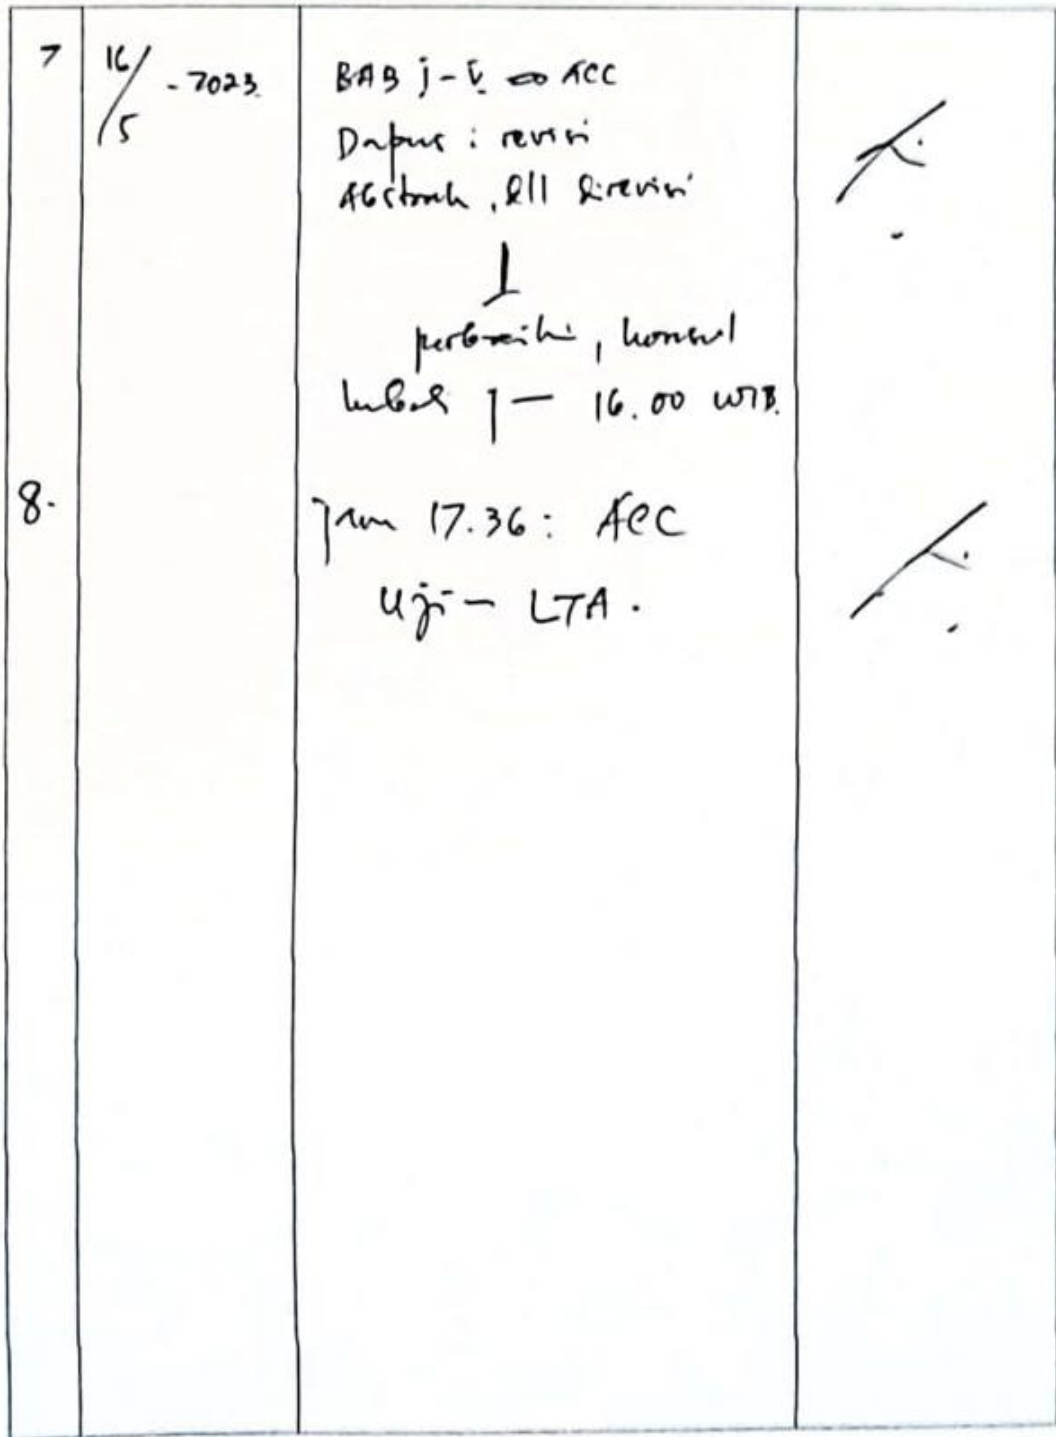 7 16/5 - 2023
BAB I - V ACC
Dapus : revisi
Abstrak, dll direvisi
perbaiki, konsul
kembali j 16.00 WIB.
8.
jam 17.36 : ACC
Uji - LTA.